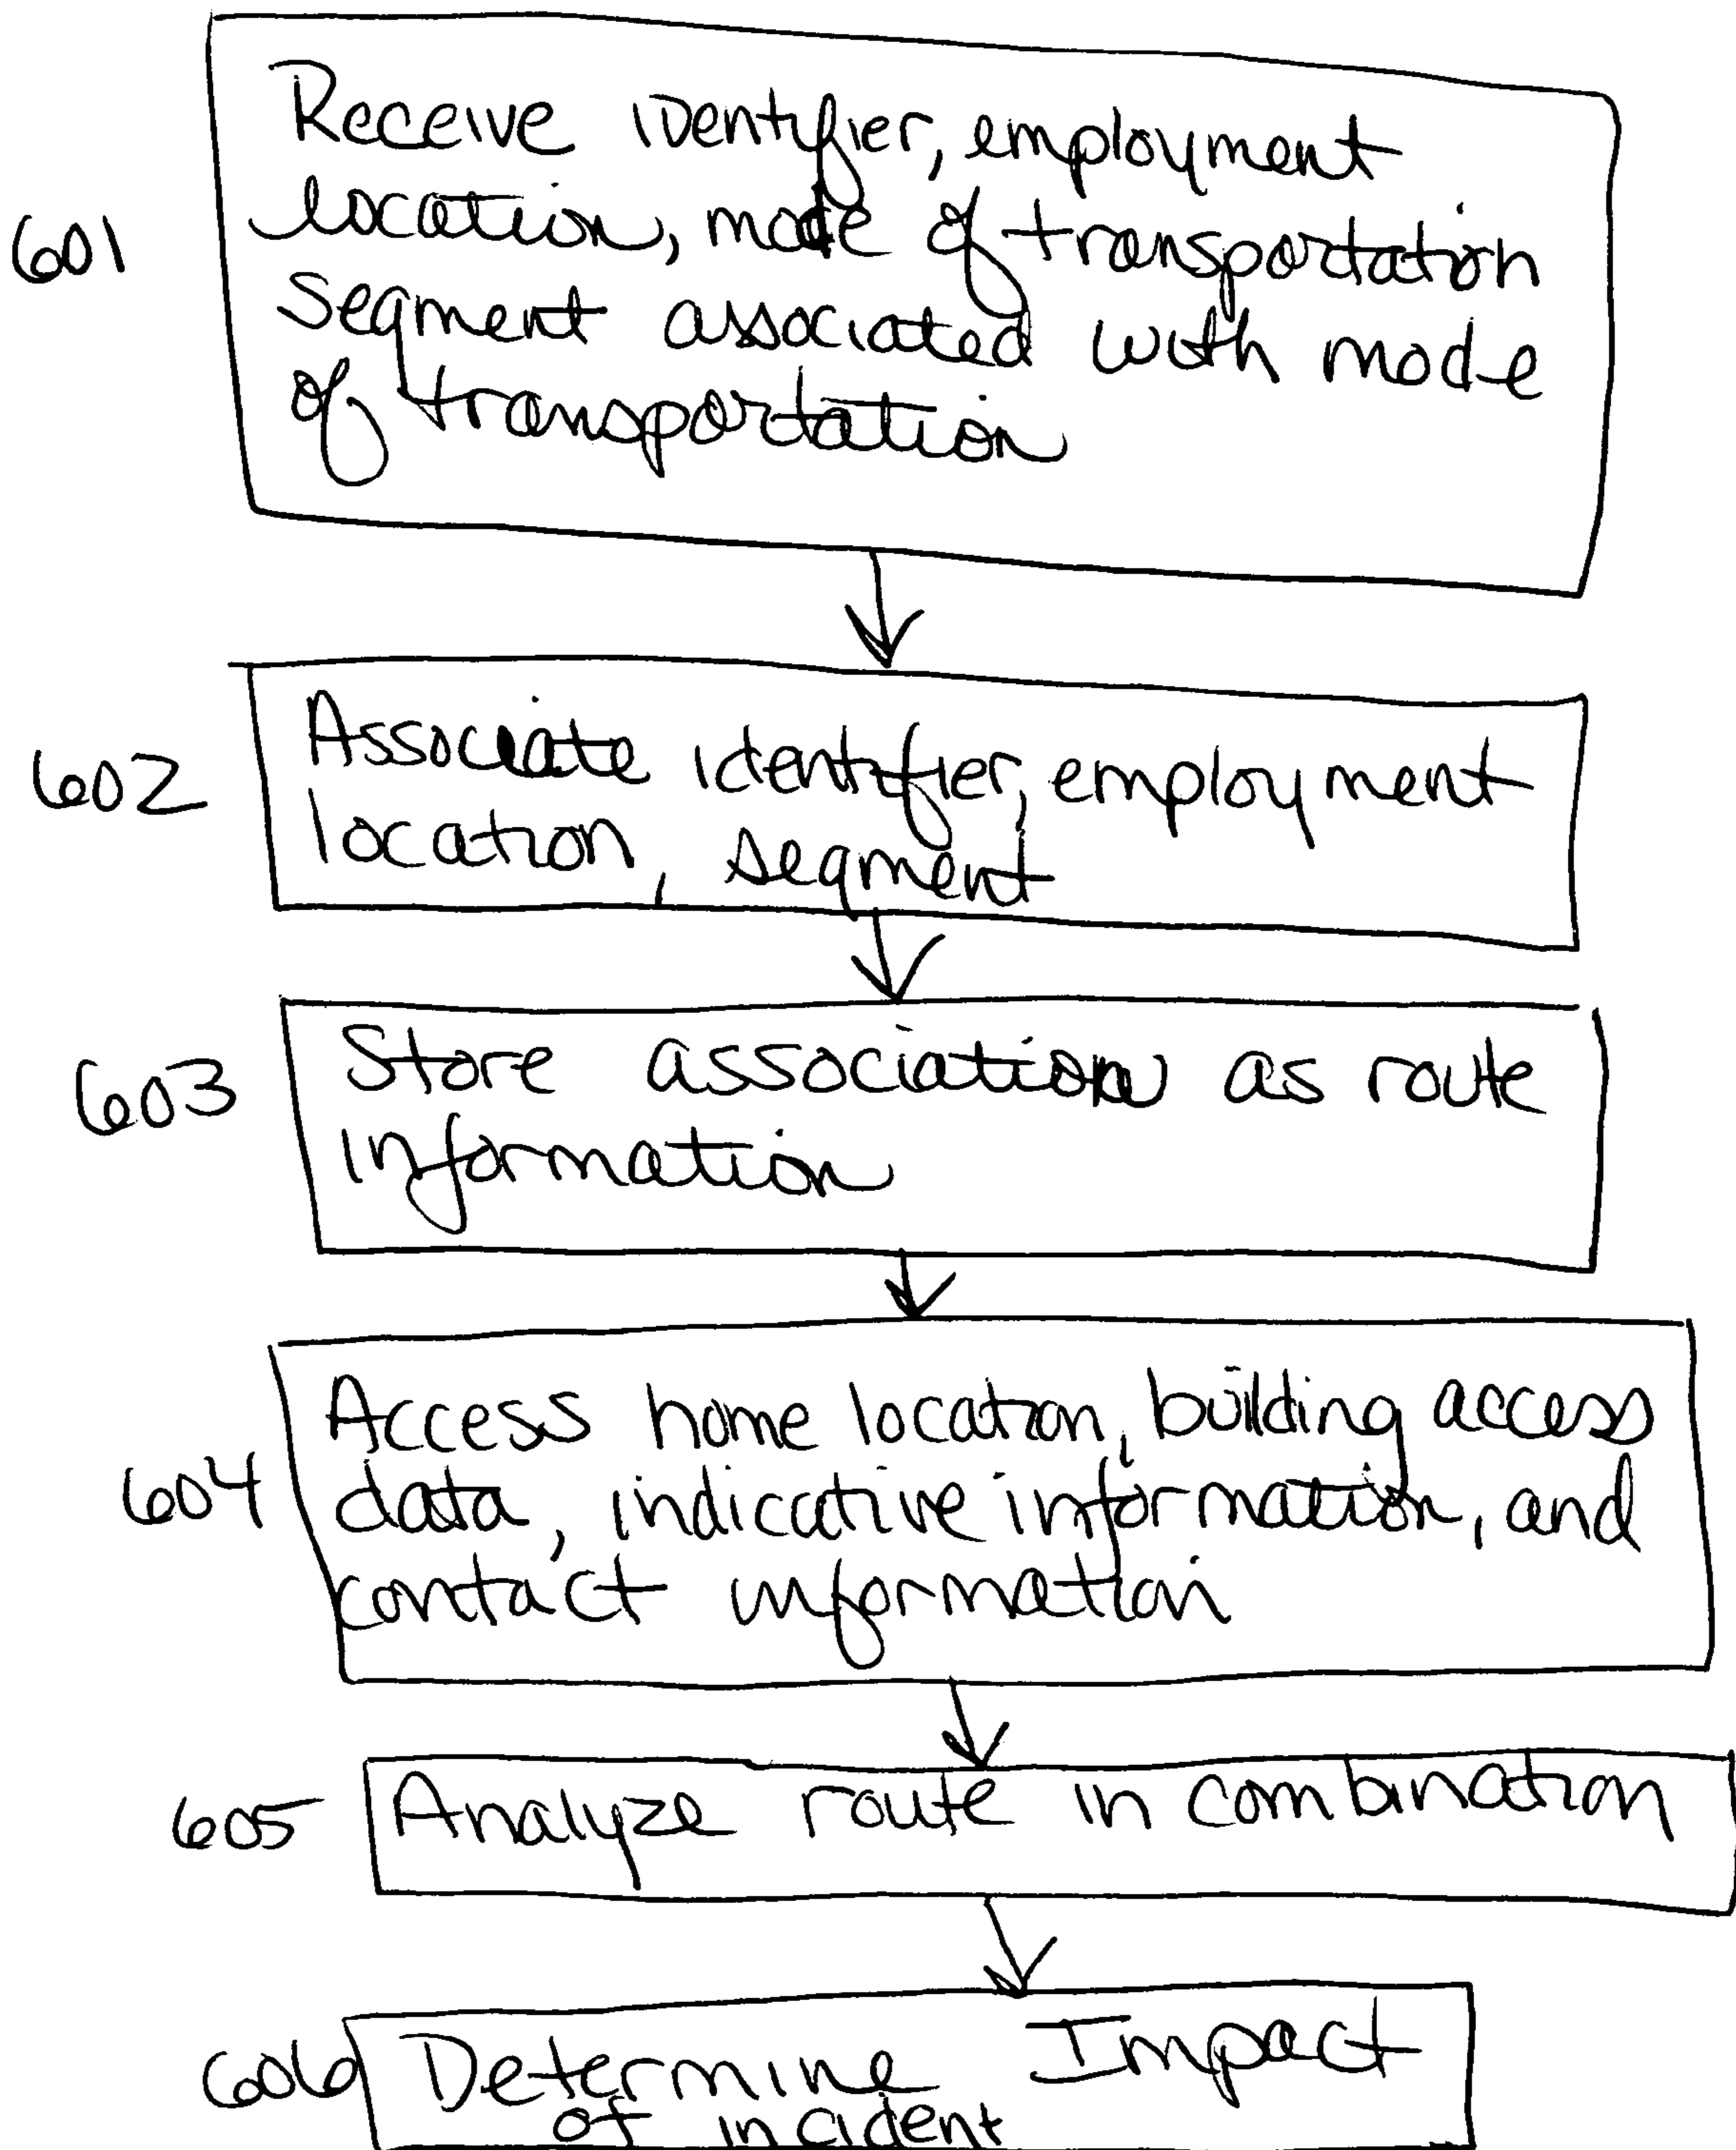 601
Receive identifier, employment
location, mode of transportation
segment associated with mode
of transportation
602
Associate identifier, employment
location, segment
603
Store association as route
information
604
Access home location, building access
data, indicative information, and
contact information
605
Analyze route in combination
606
Determine Impact
of incident